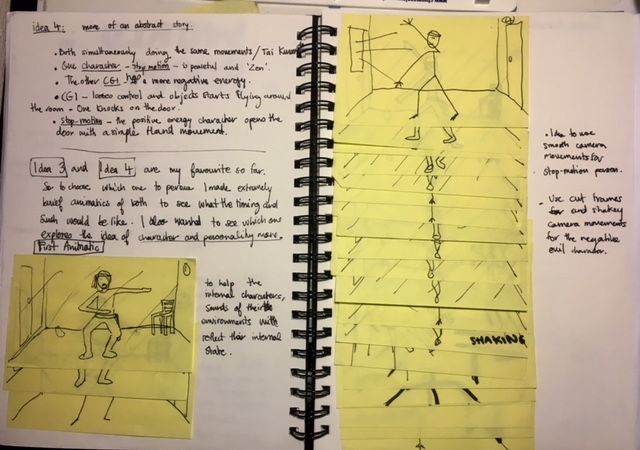 idea 4: more of an abstract story.
• Both simultaneously doing the same movements / Tai
• One character - Stop motion - is peaceful and 'Zen'.
• The other CGI has a more negative energy.
• CGI - looses control and objects starts flying around
the room - One knocks on the door.
• Stop-motion - the positive energy character opens the
door with a simple Hand movement.
Idea 3 and Idea 4 are my favourite so far.
So to choose which one to persue I made extremely
brief animatics of both to see what the timing and
Such would be like. I also wanted to see which one
explores the idea of character and personality more.
First Animatic
to help the
internal characters,
sounds of their
environments will
reflect their internal
state.
SHAKING
• Idea to use
smooth camera
movements for
stop-motion person.
- Use cut frames
for and shakey
camera movements
for the negative
evil character.